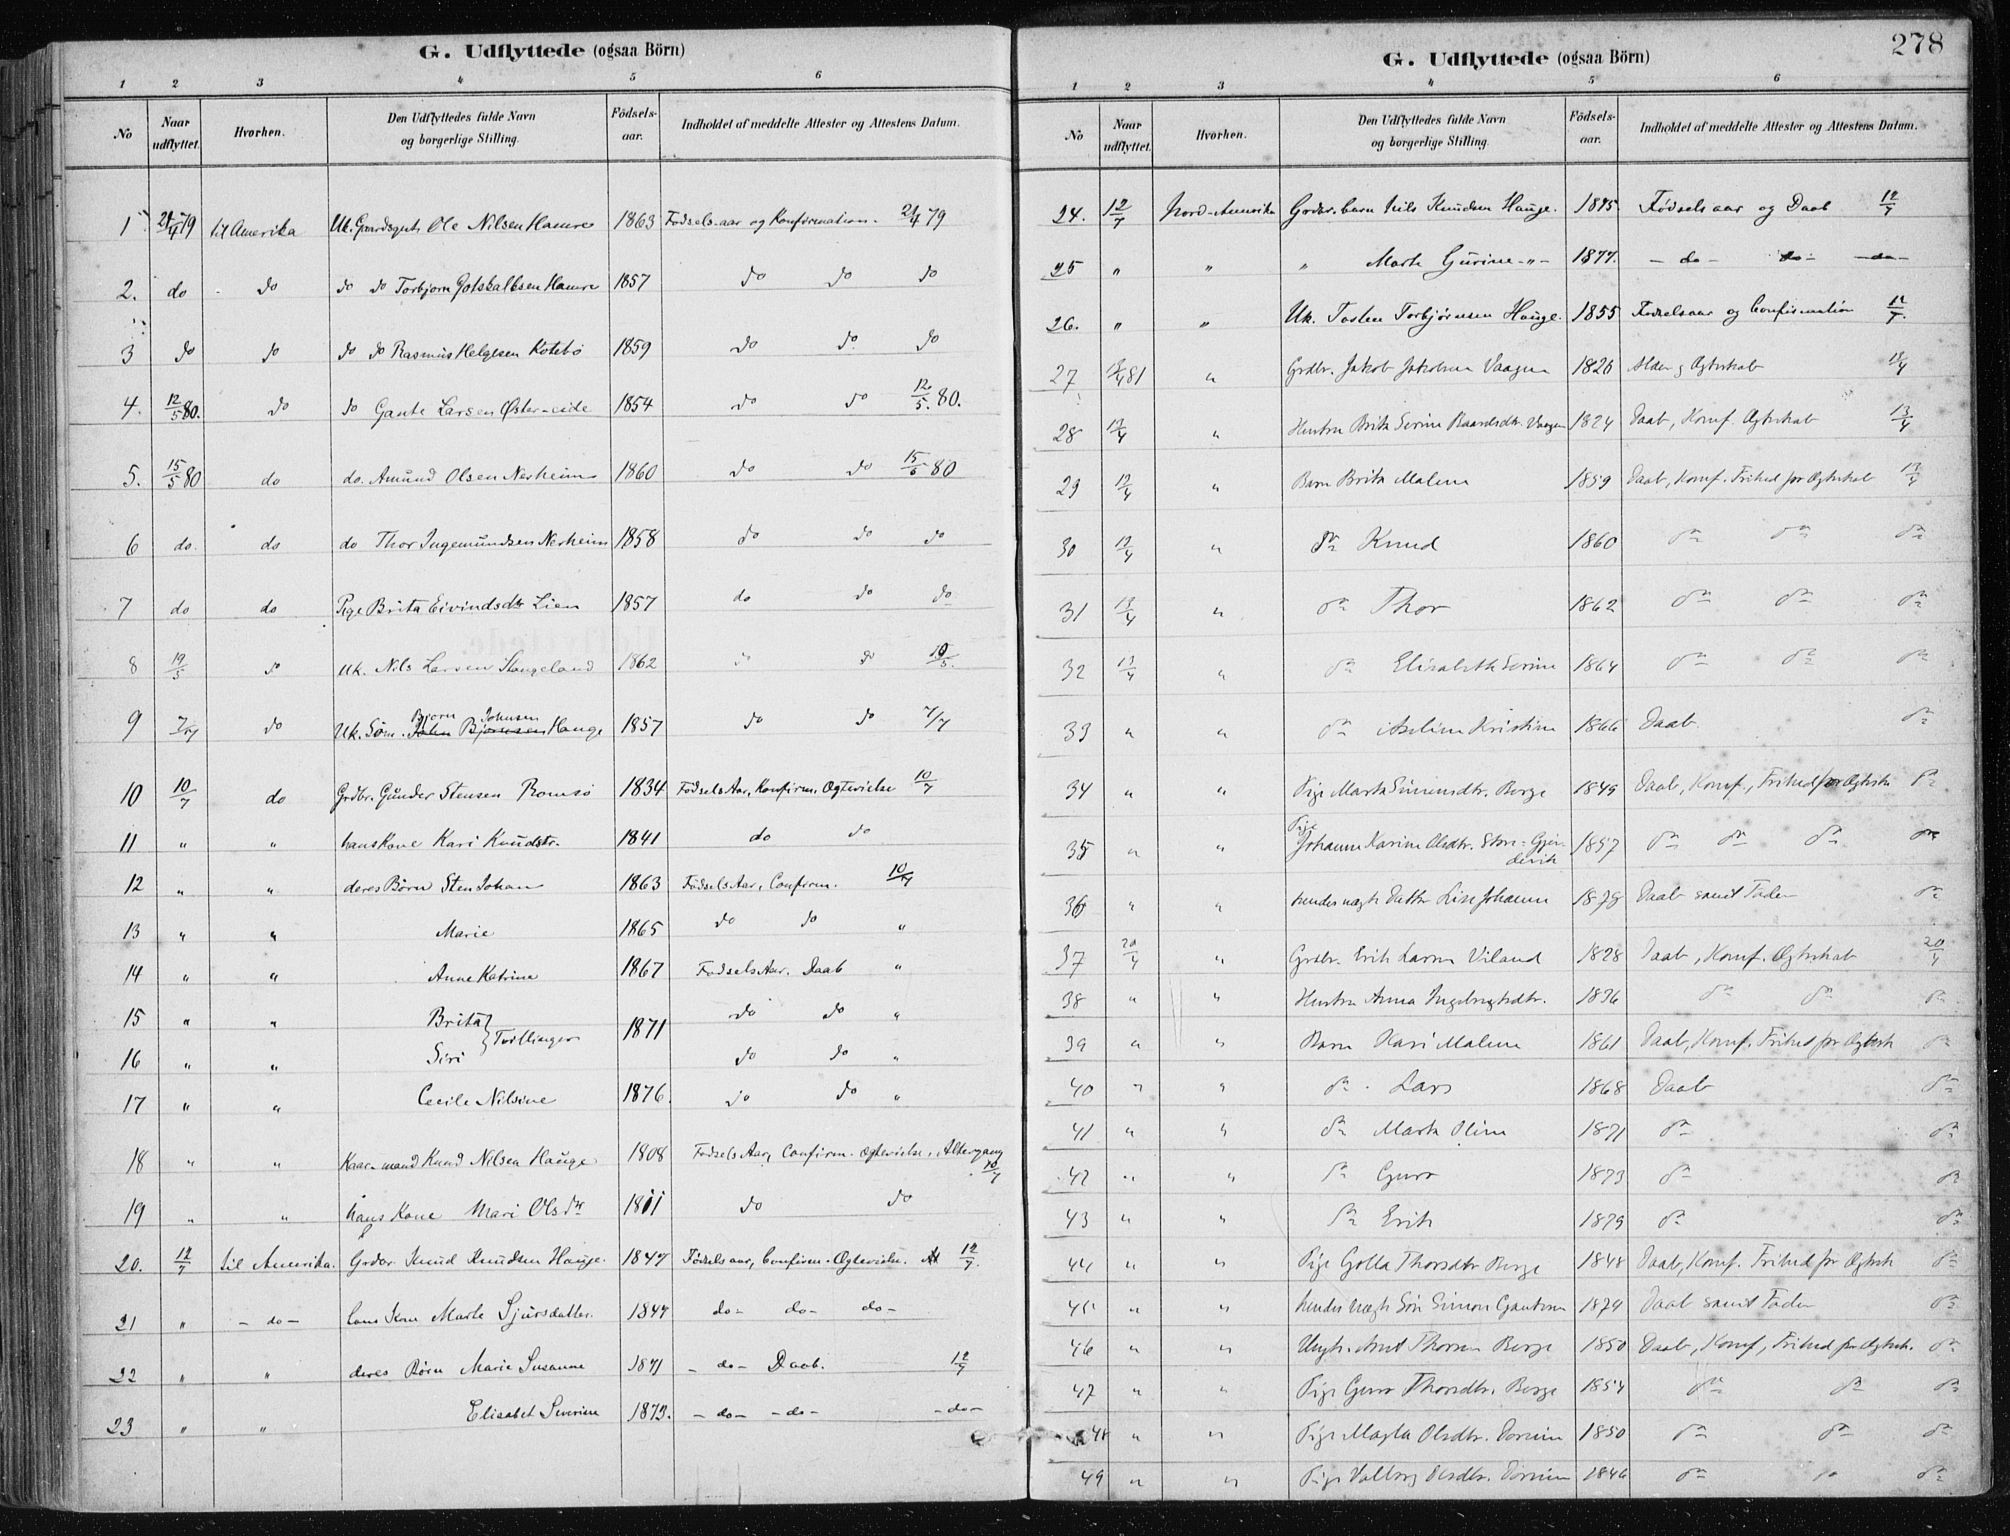 G. Udflyttede (ogsaa Börn)
1 2 3 4 5 6
No Naar udflyttet. Hvorhen. Den Udflyttedes fulde Navn og borgerlige Stilling. Fødsels-aar. Indholdet af meddelte Attester og Attestens Datum.
1 21/4 79 til Amerika Uk. Gaardsgut Ole Nilsen Hamre 1863 Fødsels-aar og Konfirmation. 21/4 79
2. do do do do Torbjørn Gotskalksen Hamre 1857 do do do
3 do do do do Rasmus Helgesen Kotebø 1859 do do do
4. 12/5 80. do do Gaute Larsen Østereide 1854 do do 12/5. 80.
5. 15/5 80 do do. Amund Olsen Nesheim 1860 do do 15/5 80
6 do. do do Thor Ingemundsen Nesheim 1858 do do do
7 do do Pige Brita Eivindsdtr Lien 1857 do do do
8 19/5 do Uk. Nils Larsen Stangeland 1862 do do 19/5.
9 7/7 do Uk. Søn. Bjørn Johnsen Hauge 1857 do do 7/7
10 10/7 do Grdbr. Gunder Stensen Romsø 1834 Fødsels Aar, Konfirm. Ogtevielse 10/7
11 " " hans Kone Kari Knudstr. 1841 do do
12 " " deres Børn Sten Johan 1863 Fødsels Aar, Confirm. 10/7
13 " " Marie 1865 do do "
14 " " Anne Katrine 1867 Fødsels Aar. Daab "
15 " " Brita } Tvillinger 1871 do do "
16 " " Siri do do "
17 " " Cecile Nilsine 1876. do do "
18 " " Kaarmand Knud Nilsen Hauge 1808 Fødsels Aar, Confirm. Ogtevielse, Altergang 10/7
19 " " hans Kone Mari Olsdtr 1811 do do
20. 12/7 til Amerika. Grdbr Knud Knudsen Hauge. 1847 Fødselsaar, Confirm. Ogtevielse. 12/7.
21 " - do - hans Kone Marte Sjursdatter. 1847 do- do- do-
22 " " deres Børn Marie Susanne 1871 - do - Daab. 12/7
23 " " Elisabet Severine 1873. - do - - do - - do -
278
G. Udflyttede (ogsaa Börn)
1 2 3 4 5 6
No Naar udflyttet. Hvorhen. Den Udflyttedes fulde Navn og borgerlige Stilling. Fødsels-aar. Indholdet af meddelte Attester og Attestens Datum.
24. 12/7 Nord-Amerika Grdbr. barn Nils Knudsen Hauge. 1875 Fødselsaar og Daab 12/7
25 " " " Marte Gurine -"- 1877. - do - - do - - do -
26. " " Uk. Tosten Torbjørnsen Hauge. 1855 Fødselsaar og Confirmation 12/7.
27 13/4 81 " Grdbr. Jakob Jakobsen Vaagen 1826 Alder og Ægteskab 13/4
28 13/4 " Hustru Brita Serine Baardsdtr. Vaagen 1824 Daab, Konf. Ægteskab 13/4
29 13/4 " Barn Brita Malene 1859 Daab, Konf. Frihed for Ægteskab 13/4
30 13/4 " do Knud 1860 do do do
31 13/4 " do Thor 1862 do do do
32 13/4 " do Elisabeth Serine 1864 do do do
33 " " do Aseline Kristine 1866 Daab. do
34 " " Pige Marta Simensdtr. Berge 1849 Daab, Konf., Frihed for Ægtesk do
35 " " Pige Johanne Karine Olsdtr. Store-Gjerdevik 1857 do do do do
36 " " hendes uægte Datter Lise Johanne 1878 Daab samt Fader do
37 20/4 " Grdbr. Erik Larsen Viland 1828 Daab, Konf. Ægteskab 20/4
38 " " Hustru Anna Ingebrigtsdtr. 1836 do do do
39 " " Barn Kari Malene 1861 Daab, Konf. Frihed for Ægtesk do
40 " " do. Lars 1868 Daab do
41 " " do Marta Oline 1871 do do
42 " " do Guro 1873 do do
43 " " do Erik 1879 do do
44 " " Pige Golla Thorsdtr Berge 1848 Daab, Konf. Frihed for Ægtesk do
45 " " hendes uægte Søn Simon Gautesen 1874 Daab samt Fader do
46 " " Ungk. Thorsen Berge 1850 Daab, Konf, Frihed for Ægtesk. do
47 " " Pige Guro Thorsdtr. Berge 1854 do do do
48 " " Pige Magla Olsdtr. 1850 do do do
49 " " Pige Valborg Olsdtr. 1846 do do do